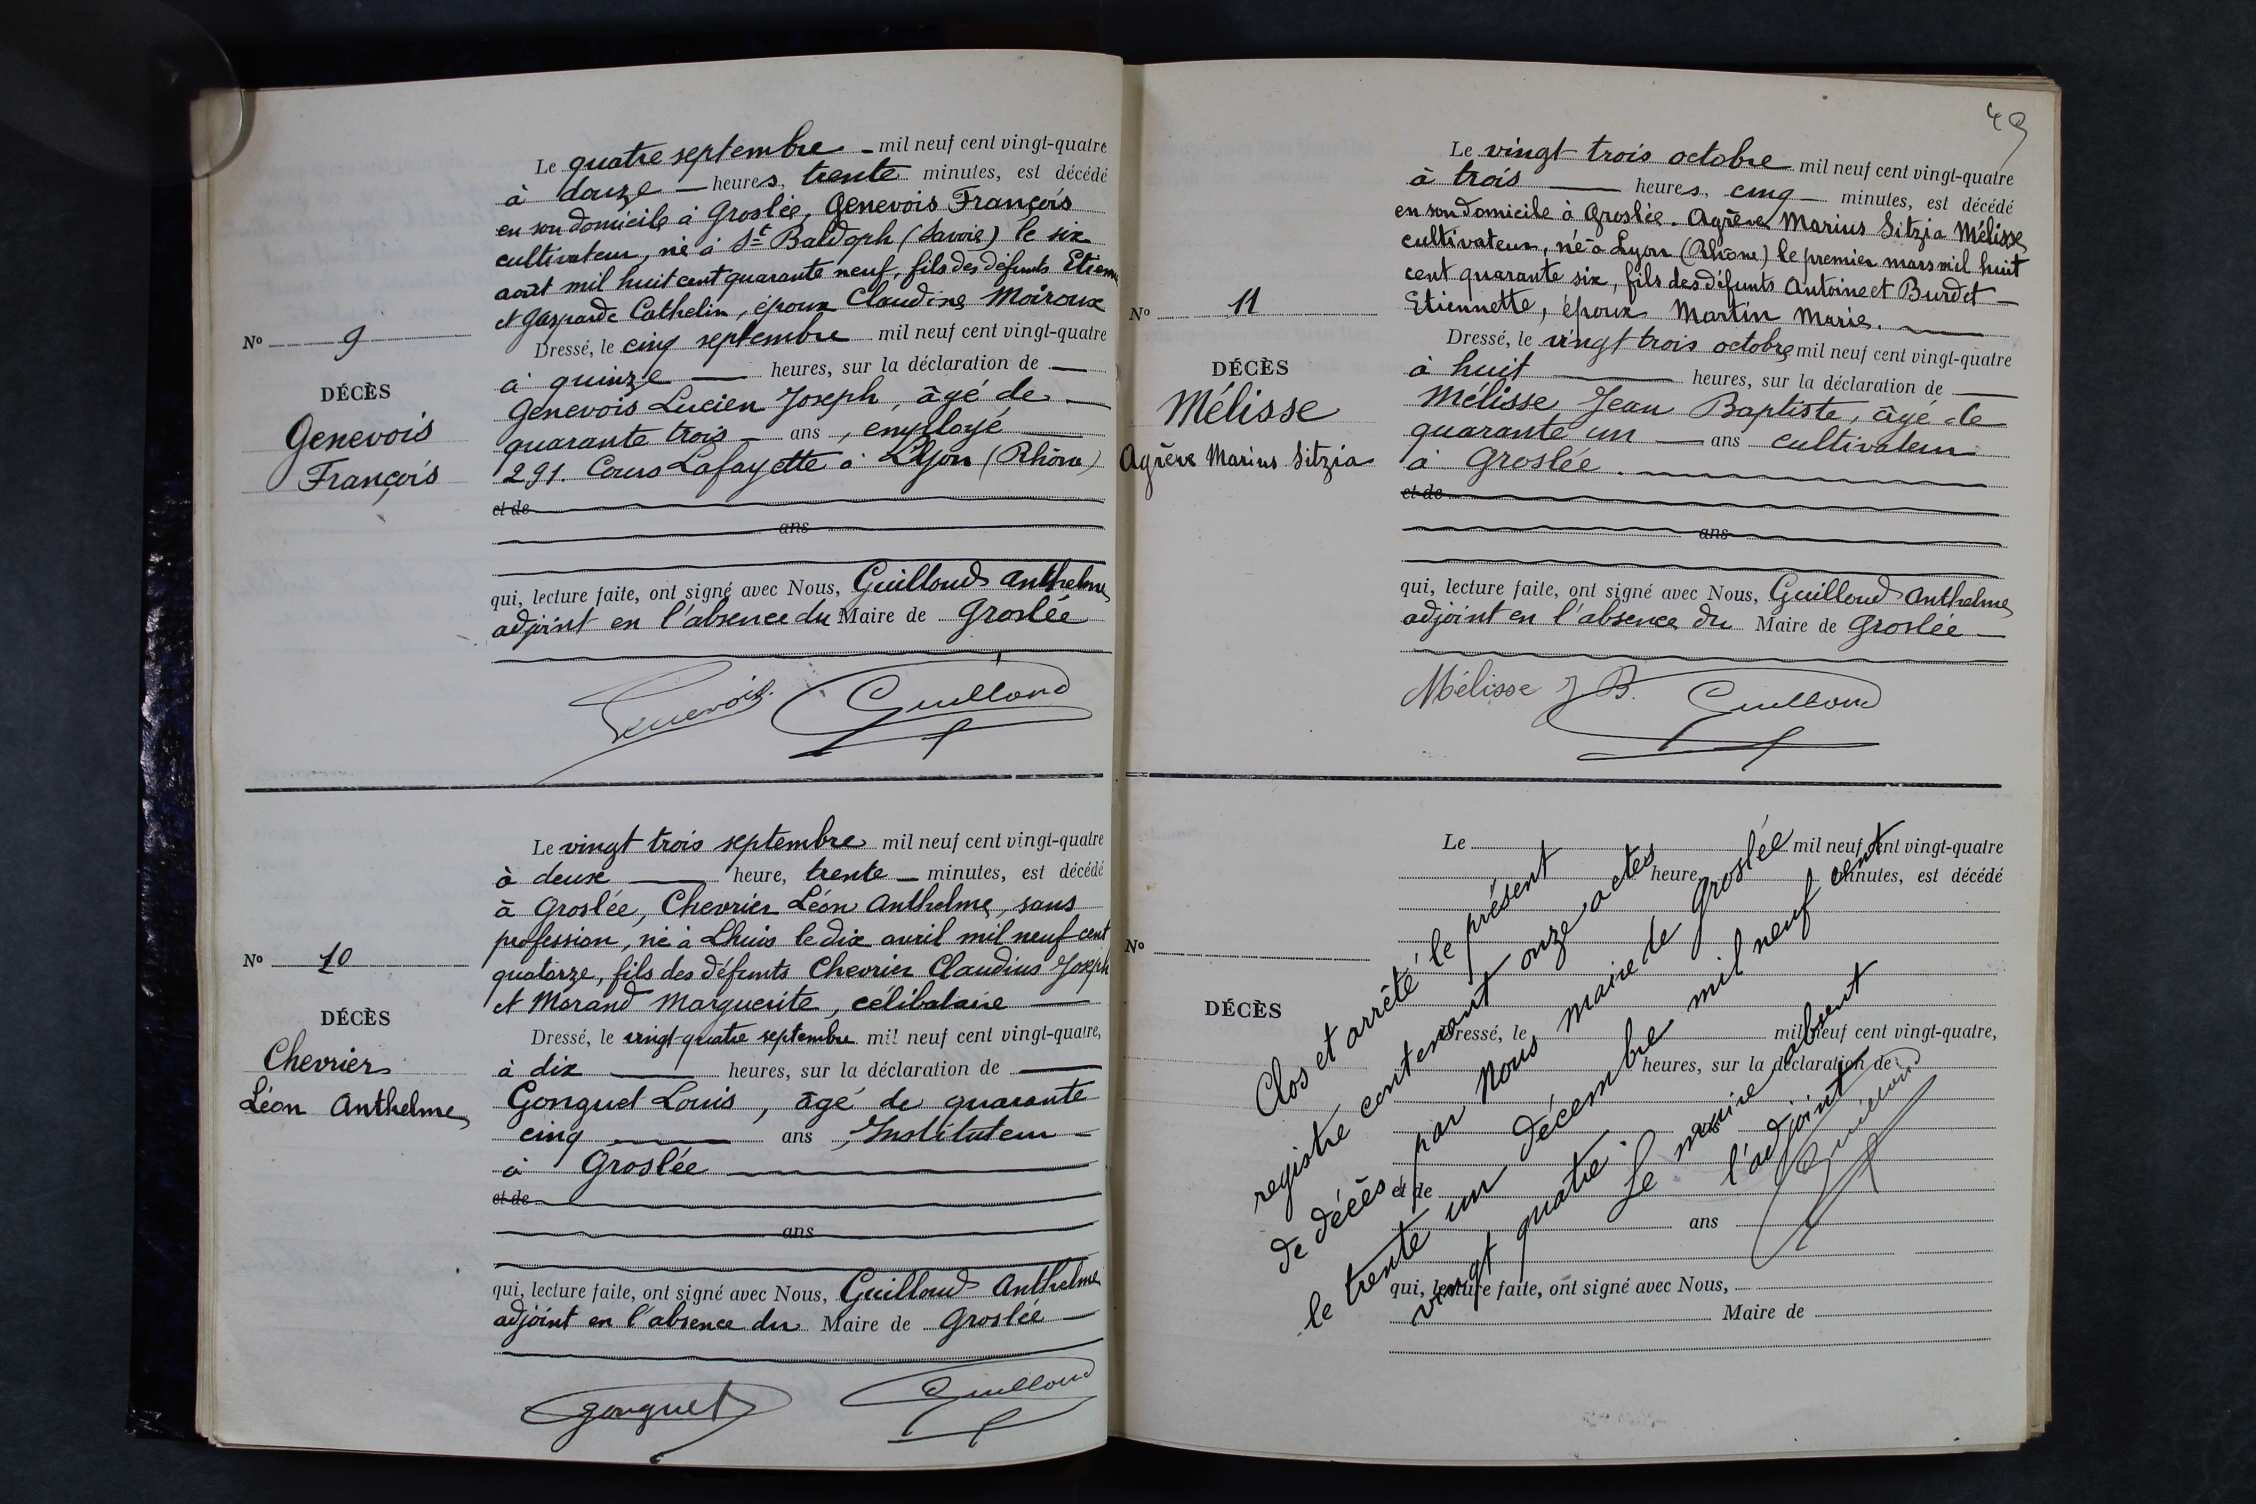 Le quatre septembre mil neuf cent vingt-quatre
à douze heures, trente minutes, est décédé
en son domicile à Groslée, Genevois François
cultivateur, né à St Baldoph (Savoie) le six
août mil huit cent quarante neuf, fils des défunts Etienne
et Gasparde Cathelin, époux Claudine Moiroux
Nº 9
Dressé, le cinq septembre mil neuf cent vingt-quatre
à quinze heures, sur la déclaration de
DÉCÈS
Genevois Lucien Joseph, âgé de
Genevois
quarante trois ans, employé
François
291. Cours Lafayette à Lyon (Rhône)
et de
ans
qui, lecture faite, ont signé avec Nous, Guilloud Anthelme
adjoint en l'absence du Maire de Groslée
Genevois Guilloud
Le vingt trois septembre mil neuf cent vingt-quatre
à deux heure, trente minutes, est décédé
à Groslée, Chevrier Léon Anthelme, sans
profession, né à Lhuis le dix avril mil neuf cent
Nº 10
quatorze, fils des défunts Chevrier Claudius Joseph
et Morand Marguerite, célibataire
DÉCÈS
Dressé, le vingt quatre septembre mil neuf cent vingt-quatre,
Chevrier
à dix heures, sur la déclaration de
Léon Anthelme
Gonguet Louis, âgé de quarante
cinq ans, Instituteur
à Groslée
et de
ans
qui, lecture faite, ont signé avec Nous, Guilloud Anthelme
adjoint en l'absence du Maire de Groslée
Gonguet Guilloud
49
Le vingt trois octobre mil neuf cent vingt-quatre
à trois heures, cinq minutes, est décédé
en son domicile à Groslée. Agrève Marius Sitzia Mélisse
cultivateur, né à Lyon (Rhône) le premier mars mil huit
cent quarante six, fils des défunts Antoine et Burdet
Nº 11
Etiennette, époux Martin Marie.
Dressé, le vingt trois octobre mil neuf cent vingt-quatre
DÉCÈS
à huit heures, sur la déclaration de
Mélisse
Mélisse Jean Baptiste, âgé de
Agrève Marius Sitzia
quarante un ans cultivateur
à Groslée.
et de
ans
qui, lecture faite, ont signé avec Nous, Guilloud Anthelme
adjoint en l'absence du Maire de Groslée
Mélisse J B. Guilloud
Le mil neuf cent vingt-quatre
heure minutes, est décédé
Nº
DÉCÈS
Dressé, le mil neuf cent vingt-quatre,
heures, sur la déclaration de
et de
ans
qui, lecture faite, ont signé avec Nous,
Maire de
Clos et arrêté le présent
registre contenant onze actes
de décès, par Nous maire de Groslée
le trente un décembre mil neuf cent
vingt quatre.
Le maire absent
l'adjoint
Guilloud